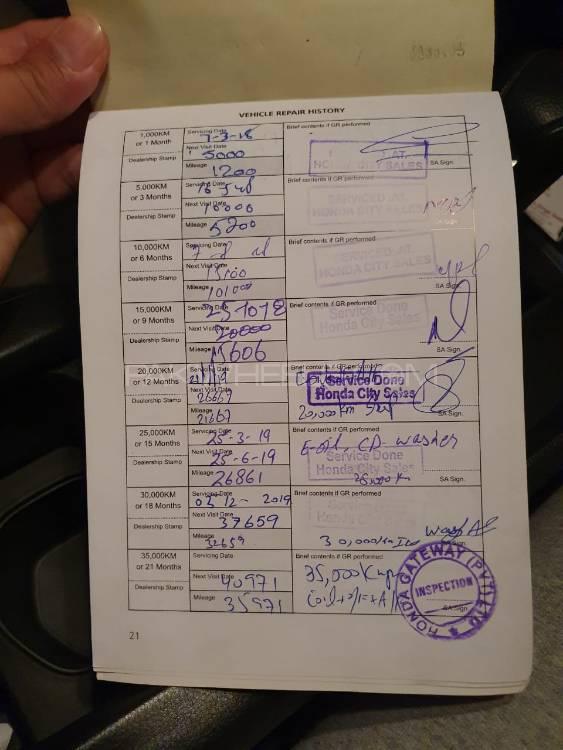 VEHICLE REPAIR HISTORY
1,000KM
or 1 Month
Dealership Stamp
Servicing Date
7-3-18
Next Visit Date
5000
Mileage
1200
Brief contents if GR performed
HONDA CITY SALES
SA Sign.
5,000KM
or 3 Months
Dealership Stamp
Servicing Date
Next Visit Date
10000
Mileage
5200
Brief contents if GR performed
SERVICED AT
HONDA CITY SALES
SA Sign.
10,000KM
or 6 Months
Dealership Stamp
Servicing Date
Next Visit Date
Mileage
Brief contents if GR performed
SERVICED AT
HONDA CITY SALES
SA Sign.
15,000KM
or 9 Months
Dealership Stamp
Servicing Date
Next Visit Date
20000
Mileage
Brief contents if GR performed
Service Done
Honda City Sales
SA Sign.
20,000KM
or 12 Months
Dealership Stamp
Servicing Date
Next Visit Date
26667
Mileage
21667
Brief contents if GR performed
Service Done
Honda City Sales
20,000 Km
SA Sign.
25,000KM
or 15 Months
Dealership Stamp
Servicing Date
25-3-19
Next Visit Date
25-6-19
Mileage
26861
Brief contents if GR performed
E-oil, CD-washer
Service Done
Honda City Sales
SA Sign.
30,000KM
or 18 Months
Dealership Stamp
Servicing Date
02-12-2019
Next Visit Date
37659
Mileage
32659
Brief contents if GR performed
30,000Km
SA Sign.
35,000KM
or 21 Months
Dealership Stamp
Servicing Date
Next Visit Date
40971
Mileage
35971
Brief contents if GR performed
35,000Km
HONDA GATEWAY (PVT) LTD
INSPECTION
SA Sign.
21